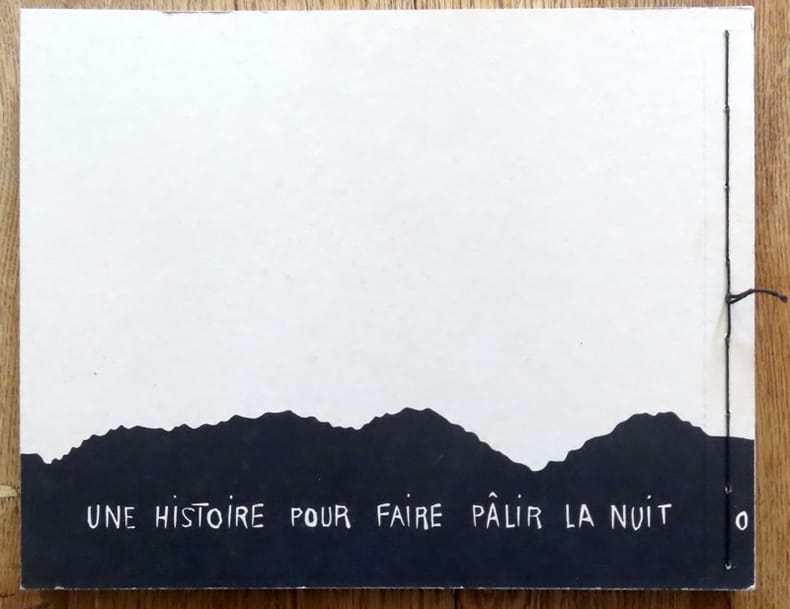 UNE HISTOIRE POUR FAIRE PÂLIR LA NUIT O